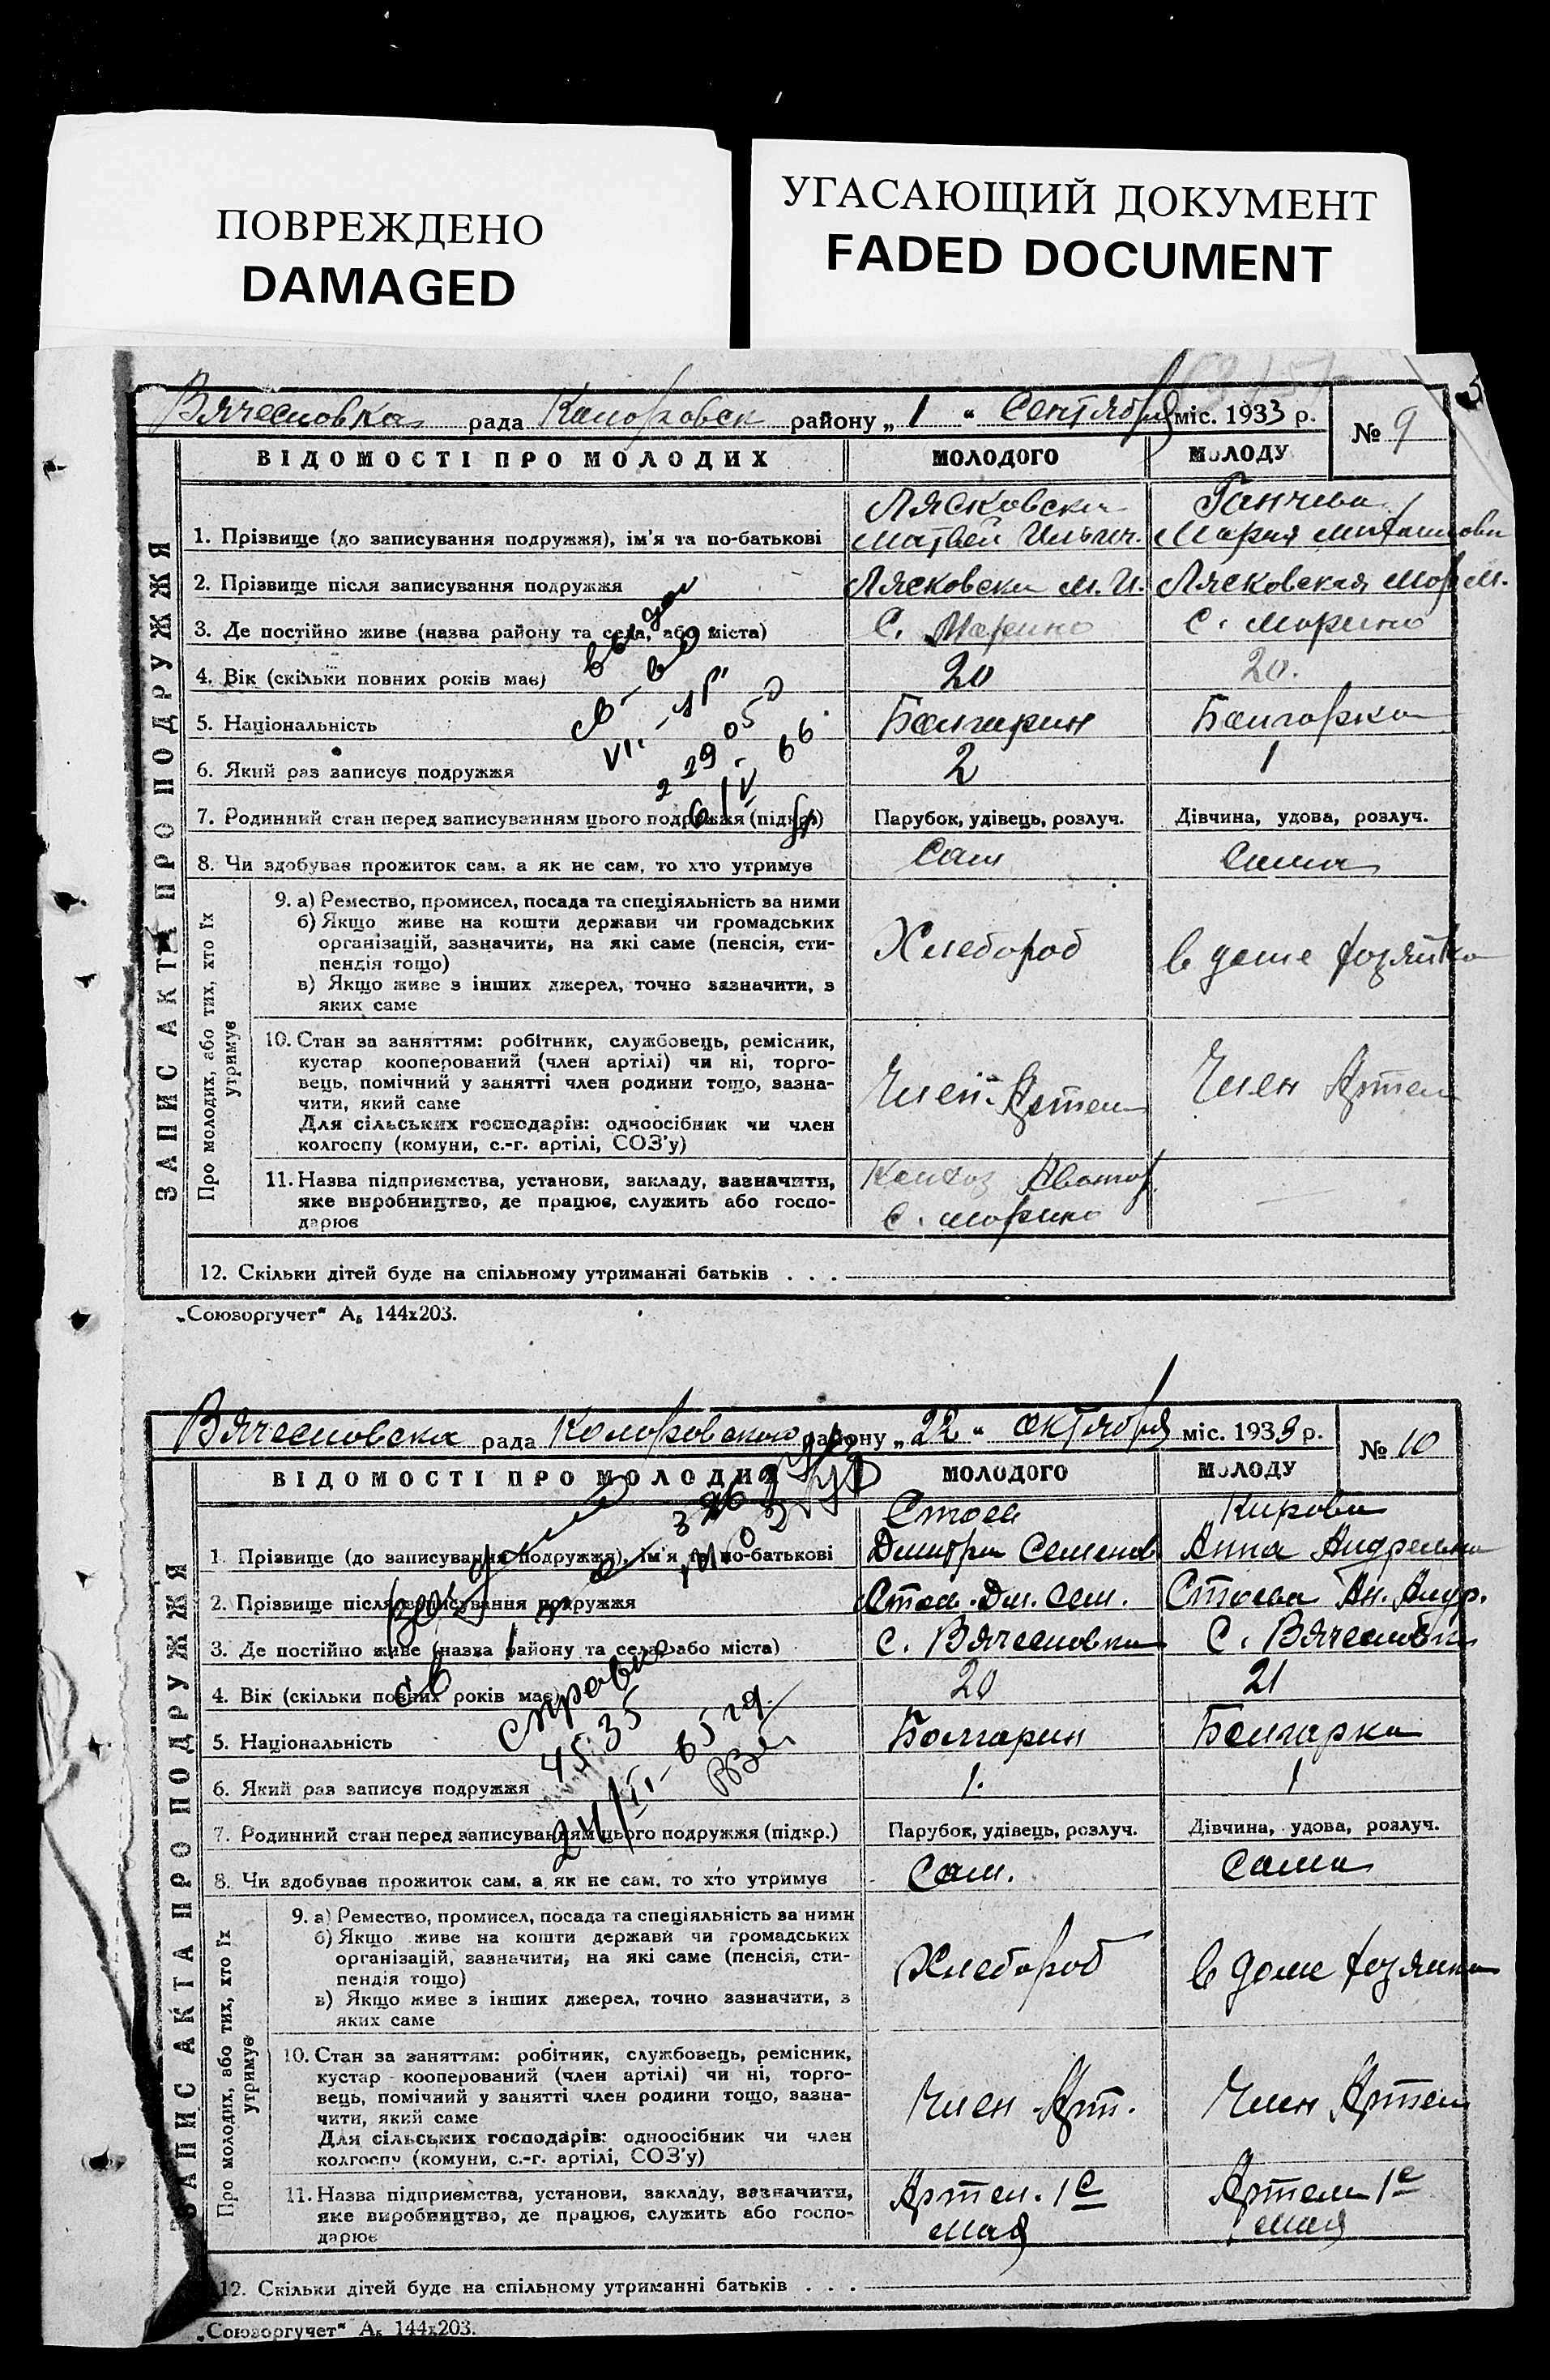 ПОВРЕЖДЕНО
DAMAGED
УГАСАЮЩИЙ ДОКУМЕНТ
FADED DOCUMENT
Вячесловка рада района „ 1 “ Сентября міс. 1933 р. № 9
ЗАПИС АКТА ПРО ПОДРУЖЖЯ
ВІДОМОСТІ ПРО МОЛОДИХ МОЛОДОГО МОЛОДУ
Лясковски Ганчева
1. Прізвище (до записування подружжя), ім'я та по-батькові Матвей Ильич. Мария
2. Прізвище після записування подружжя Лясковски М. И. Лясковская Мар М.
3. Де постійно живе (назва району та села, або міста) С. Марино С. Морино
4. Вік (скільки повних років має) 20 20.
5. Національність Болгарин Болгарка
6. Який раз записує подружжя 2 1
7. Родинний стан перед записуванням цього подружжя (підкр.) Парубок, удівець, розлуч. Дівчина, удова, розлуч.
8. Чи здобував прожиток сам, а як не сам, то хто утримує Сам Сама
Про молодих, або тих, хто їх утримує
9. а) Ремество, промисел, посада та спеціяльність за ними
б) Якщо живе на кошти держави чи громадських
організацій, зазначити, на які саме (пенсія, сти-
пендія тощо)
в) Якщо живе з інших джерел, точно зазначити, з
яких саме
Хлебороб в доме хозяйка
10. Стан за заняттям: робітник, службовець, ремісник,
кустар кооперований (член артілі) чи ні, торго-
вець, помічний у занятті член родини тощо, зазна-
чити, який саме
Для сільських господарів: одноосібник чи член
колгоспу (комуни, с.-г. артілі, СОЗ'у)
Член Артели Член Артели
11. Назва підприємства, установи, закладу, зазначити,
яке виробництво, де працює, служить або госпо-
дарює
Колхоз
С. Морино
12. Скільки дітей буде на спільному утриманні батьків . . .
„Союзоргучет“ А₅ 144х203.
Вячесловска рада району „ 22 “ октября міс. 1933 р. № 10
ЗАПИС АКТА ПРО ПОДРУЖЖЯ
ВІДОМОСТІ ПРО МОЛОДИХ МОЛОДОГО МОЛОДУ
Стоев Кирова
1. Прізвище (до записування подружжя), ім'я та по-батькові Дмитри Семенов Анна Андреевна
2. Прізвище після записування подружжя Стоев. Дм. Сем. Стоева Ан. Андр.
3. Де постійно живе (назва району та села, або міста) С. Вячесловка С. Вячесловка
4. Вік (скільки повних років має) 20 21
5. Національність Болгарин Болгарка
6. Який раз записує подружжя 1. 1
7. Родинний стан перед записуванням цього подружжя (підкр.) Парубок, удівець, розлуч. Дівчина, удова, розлуч.
8. Чи здобував прожиток сам, а як не сам, то хто утримує Сам. Сама
Про молодих, або тих, хто їх утримує
9. а) Ремество, промисел, посада та спеціяльність за ними
б) Якщо живе на кошти держави чи громадських
організацій, зазначити, на які саме (пенсія, сти-
пендія тощо)
в) Якщо живе з інших джерел, точно зазначити, з
яких саме
Хлебороб в доме хозяйка
10. Стан за заняттям: робітник, службовець, ремісник,
кустар кооперований (член артілі) чи ні, торго-
вець, помічний у занятті член родини тощо, зазна-
чити, який саме
Для сільських господарів: одноосібник чи член
колгоспу (комуни, с.-г. артілі, СОЗ'у)
Член Арт. Член Артели
11. Назва підприємства, установи, закладу, зазначити,
яке виробництво, де працює, служить або госпо-
дарює
Артел. 1е Артели 1е
мая мая
12. Скільки дітей буде на спільному утриманні батьків . . .
„Союзоргучет“ А₅ 144х203.